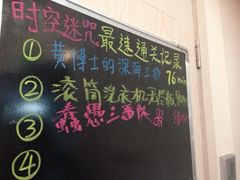 时空迷咒最速通关记录
① 黄博士的深海工坊 76min
② 滚筒洗衣机
③ 蠢愚三番队
④